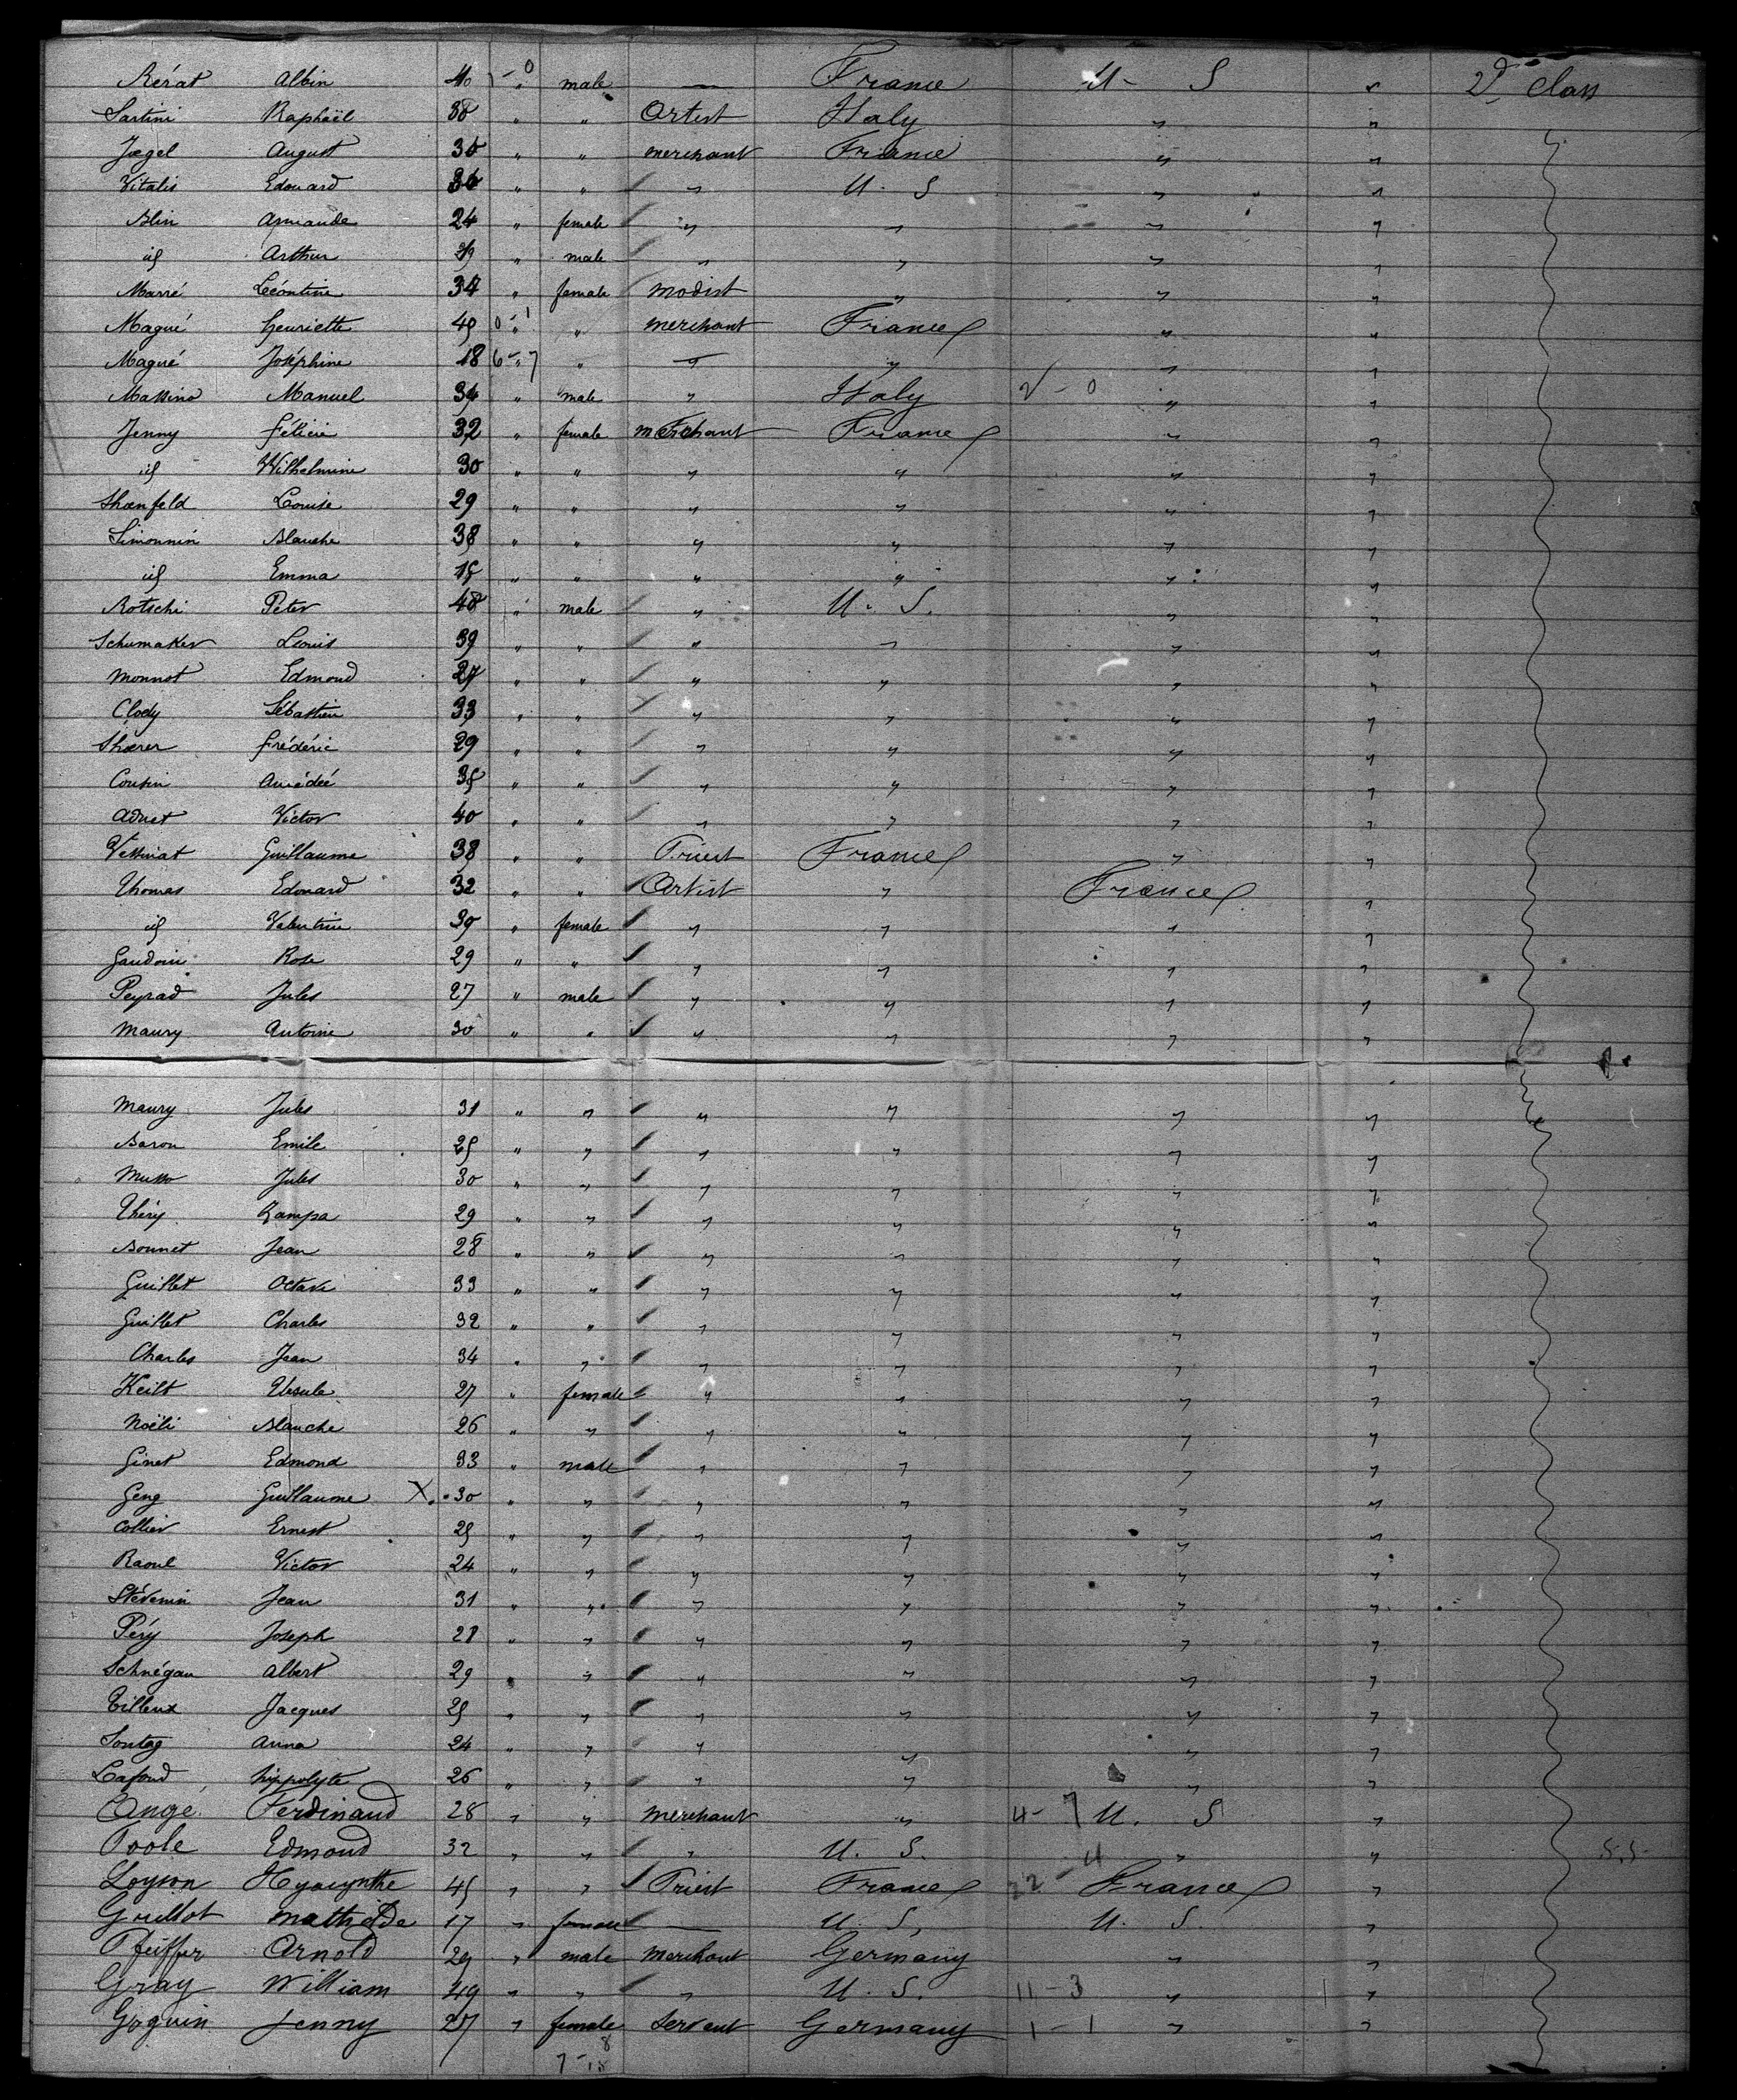 Rérat Albin 40 7-0 male — France U-S " 2d class
Sartini Raphaël 38 " " Artist Italy " "
Jægel August 36 " " merchant France " "
Vitalis Edouard 36 " " " U. S " "
Blin Armande 24 " female " " " "
id Arthur 39 " male " " " "
Marré Léontine 34 " female modist " " "
Magué henriette 49 0-1 " merchant France " "
Magué Joséphine 18 6-7 " — " " "
Massino Manuel 34 " male " Italy 2-0 " "
Jenny félicie 32 " female merchant France " "
id Wilhelmine 30 " " " " " "
Shœnfeld Louise 29 " " " " " "
Simonnin Blanche 38 " " " " " "
id Emma 15 " " " " " "
Rotschi Peter 48 " male " U. S. " "
Schumaker Louis 39 " " " " " "
Monnot Edmond 27 " " " " " "
Clody Sébastien 33 " " " " " "
Shærer frédéric 29 " " " " " "
Cousin Amédée 35 " " " " " "
Adnet Victor 40 " " " " " "
Guillaume 38 " " Priest France " "
Thomas Edouard 32 " " Artist " France "
id Valentine 30 " female " " " "
Gaudoin Rose 29 " " " " " "
Peyrad Jules 27 " male " " " "
Maury Antoine 30 " " " " " "
Maury Jules 31 " " " " " "
Baron Emile 25 " " " " " "
Musso Jules 30 " " " " " "
Théry Zampa 29 " " " " " "
Bonnet Jean 28 " " " " " "
Guillet Octave 33 " " " " " "
Guillet Charles 32 " " " " " "
Charles Jean 34 " " " " " "
Keilt Ursule 27 " female " " " "
Noëli Blanche 26 " " " " " "
Ginet Edmond 33 " male " " " "
Geng Guillaume X 30 " " " " " "
Collier Ernest 25 " " " " " "
Raoul Victor 24 " " " " " "
Stévenin Jean 31 " " " " " "
Péry Joseph 28 " " " " " "
Schnégan Albert 29 " " " " " "
Tilleux Jacques 25 " " " " " "
Sontag Anna 24 " " " " " "
Lafond hippolyte 26 " " " " " "
Angé Ferdinand 28 " " merchant " 4-7 U. S "
Poole Edmond 32 " " " U. S. 4 " " S.S.
Loyson Hyacynthe 45 " " Priest France 22 France "
Grillot Mathilde 17 " female — U. S. U. S. "
Pfeiffer Arnold 29 " male merchant Germany " "
Gray William 49 " " " U. S. 11-3 " "
Goguin Jenny 27 " female Servant Germany 1-1 " "
7-18 8